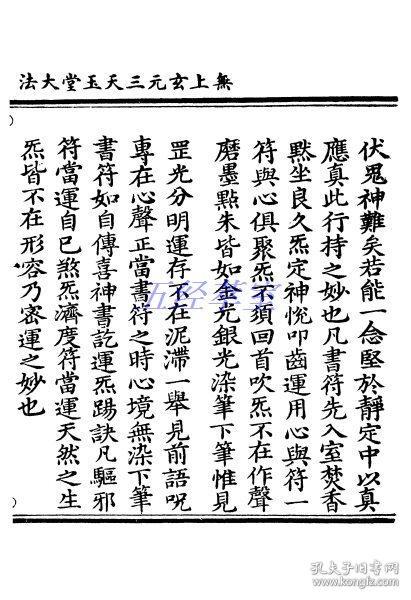 無上玄元三天玉堂大法
伏鬼神難矣若能一念堅於靜定中以真
應真此行持之妙也凡書符先入室焚香
黙坐良久炁定神悅叩齒運用心與符一
符與心俱聚炁不須回首吹炁不在作聲
磨墨點朱皆如金光銀光染筆下筆惟見
罡光分明運存不在泥滯一舉見前語呪
專在心聲正當書符之時心境無染下筆
書符如自傳喜神書訖運炁踢訣凡驅邪
符當運自己煞炁濟度符當運天然之生
炁皆不在形容乃密運之妙也
五经萃室
孔夫子旧书网